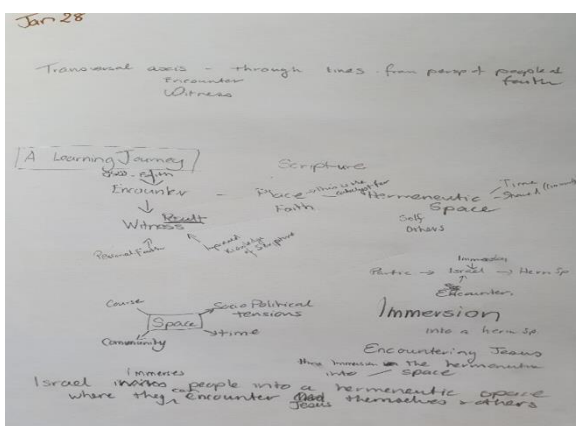 Jan 28
Transversal axis - through lines from persp of people of faith
Encounter
Witness
A Learning Journey
Scripture
Encounter - Place This is the catalyst for Hermeneutic Time
Faith Space
Witness Result
God
Others
Personal Faith
Knowledge of Scripture
Immersion
Partic → Israel → Herm Sp
Encounter.
Course
Socio Political tensions
Space
time
Community
Immersion
into a herm Sp.
Encountering Jesus
immersion the hermeneutic
into space
immerses
Israel people into a hermeneutic space
where they can encounter Jesus themselves & others